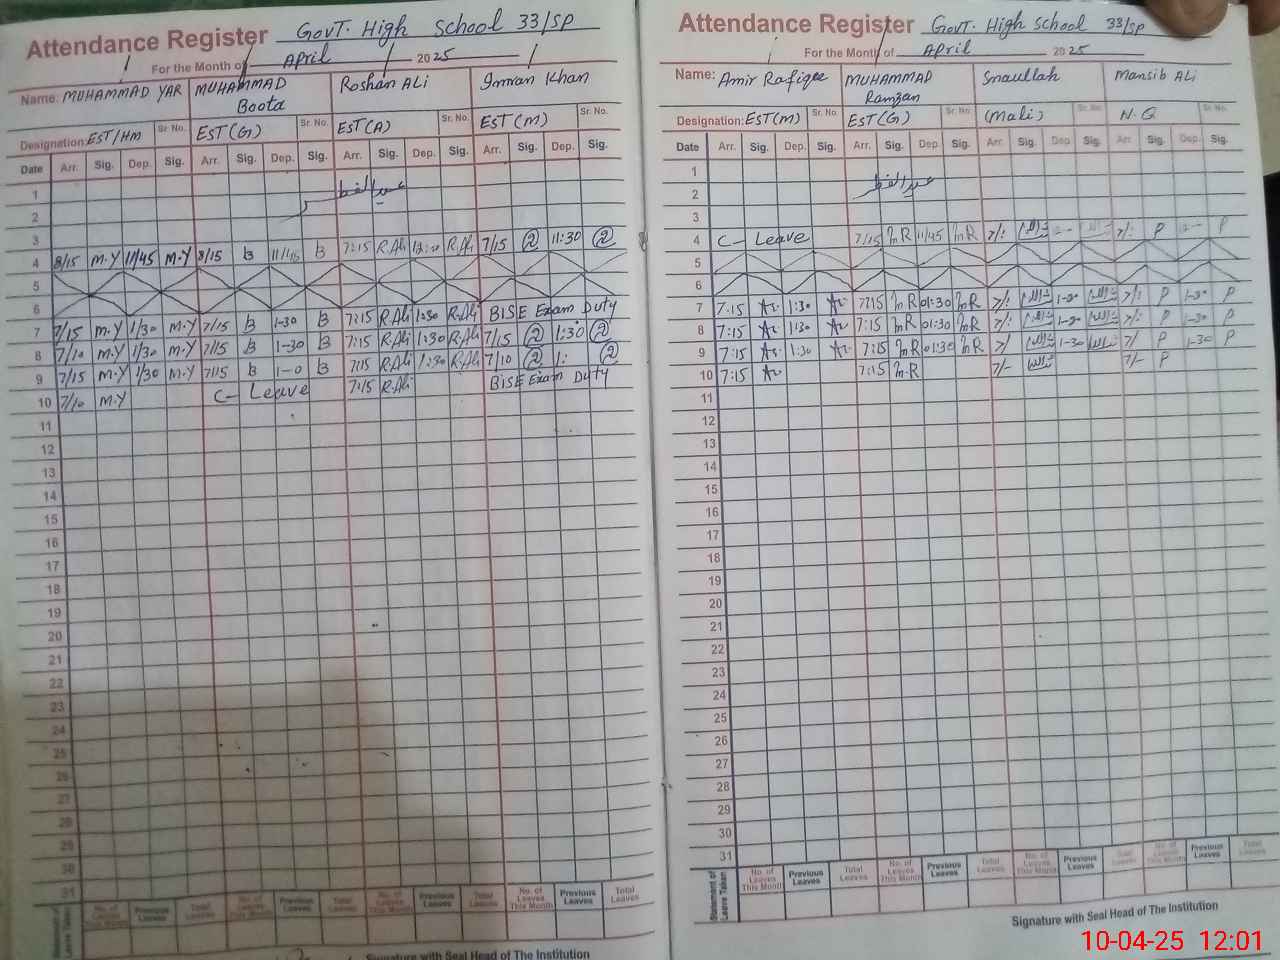 Attendance Register GovT. High School 33/SP
For the Month of April 2025
Name: MUHAMMAD YAR MUHAMMAD Boota Roshan ALi Imran Khan
Designation: EST/HM Sr. No. EST(G) Sr. No. EST(A) Sr. No. EST(M) Sr. No.
Date Arr. Sig. Dep. Sig. Arr. Sig. Dep. Sig. Arr. Sig. Dep. Sig. Arr. Sig. Dep. Sig.
1 عید الفطر
2
3
4 8/15 M.Y 11/45 M.Y 8/15 B B 7:15 R.Ali R.Ali 7/15 11:30
5
6
7 7/15 M.Y 1/30 M.Y 7/15 B 1-30 B 7:15 R.Ali 1:30 R.Ali BISE Exam Duty
8 7/10 M.Y 1/30 M.Y 7/15 B 1-30 B 7:15 R.Ali 1:30 R.Ali 7/15 1:30
9 7/15 M.Y 1/30 M.Y 7/15 B 1-0 B 7/15 R.Ali 1:30 R.Ali 7/10 1:
10 7/10 M.Y C- Leave 7:15 R.Ali BISE Exam Duty
11
12
13
14
15
16
17
18
19
20
21
22
23
24
25
26
27
28
29
30
31
No. of Leaves This Month Previous Leaves Total Leaves No. of Leaves This Month Previous Leaves Total Leaves No. of Leaves This Month Previous Leaves Total Leaves No. of Leaves This Month Previous Leaves Total Leaves
Statement of Leave Taken
Signature with Seal Head of The Institution
Attendance Register GovT. High School 33/SP
For the Month of April 2025
Name: Amir Rafiqee MUHAMMAD Ramzan Smaullah Mansib ALi
Designation: EST(M) Sr. No. EST(G) Sr. No. (Mali) Sr. No. N.Q Sr. No.
Date Arr. Sig. Dep. Sig. Arr. Sig. Dep. Sig. Arr. Sig. Dep. Sig. Arr. Sig. Dep. Sig.
1
2 عید الفطر
3
4 C- Leave 7/15 M.R 11/45 M.R 7/: 7/: P P
5
6
7 7.15 Ar 1:30 Ar 7:15 M.R 01:30 M.R 7/: 1-30 7/: P 1-30 P
8 7:15 Ar 1:30 Ar 7:15 M.R 01:30 M.R 7/: 1-30 7/: P 1-30 P
9 7:15 Ar 1:30 Ar 7:15 M.R 01:30 M.R 7/ 1-30 7/ P 1-30 P
10 7:15 Ar 7:15 M.R 7/- 7/- P
11
12
13
14
15
16
17
18
19
20
21
22
23
24
25
26
27
28
29
30
31
No. of Leaves This Month Previous Leaves Total Leaves No. of Leaves This Month Previous Leaves Total Leaves No. of Leaves This Month Previous Leaves Total Leaves No. of Leaves This Month Previous Leaves Total Leaves
Statement of Leave Taken
Signature with Seal Head of The Institution
10-04-25 12:01